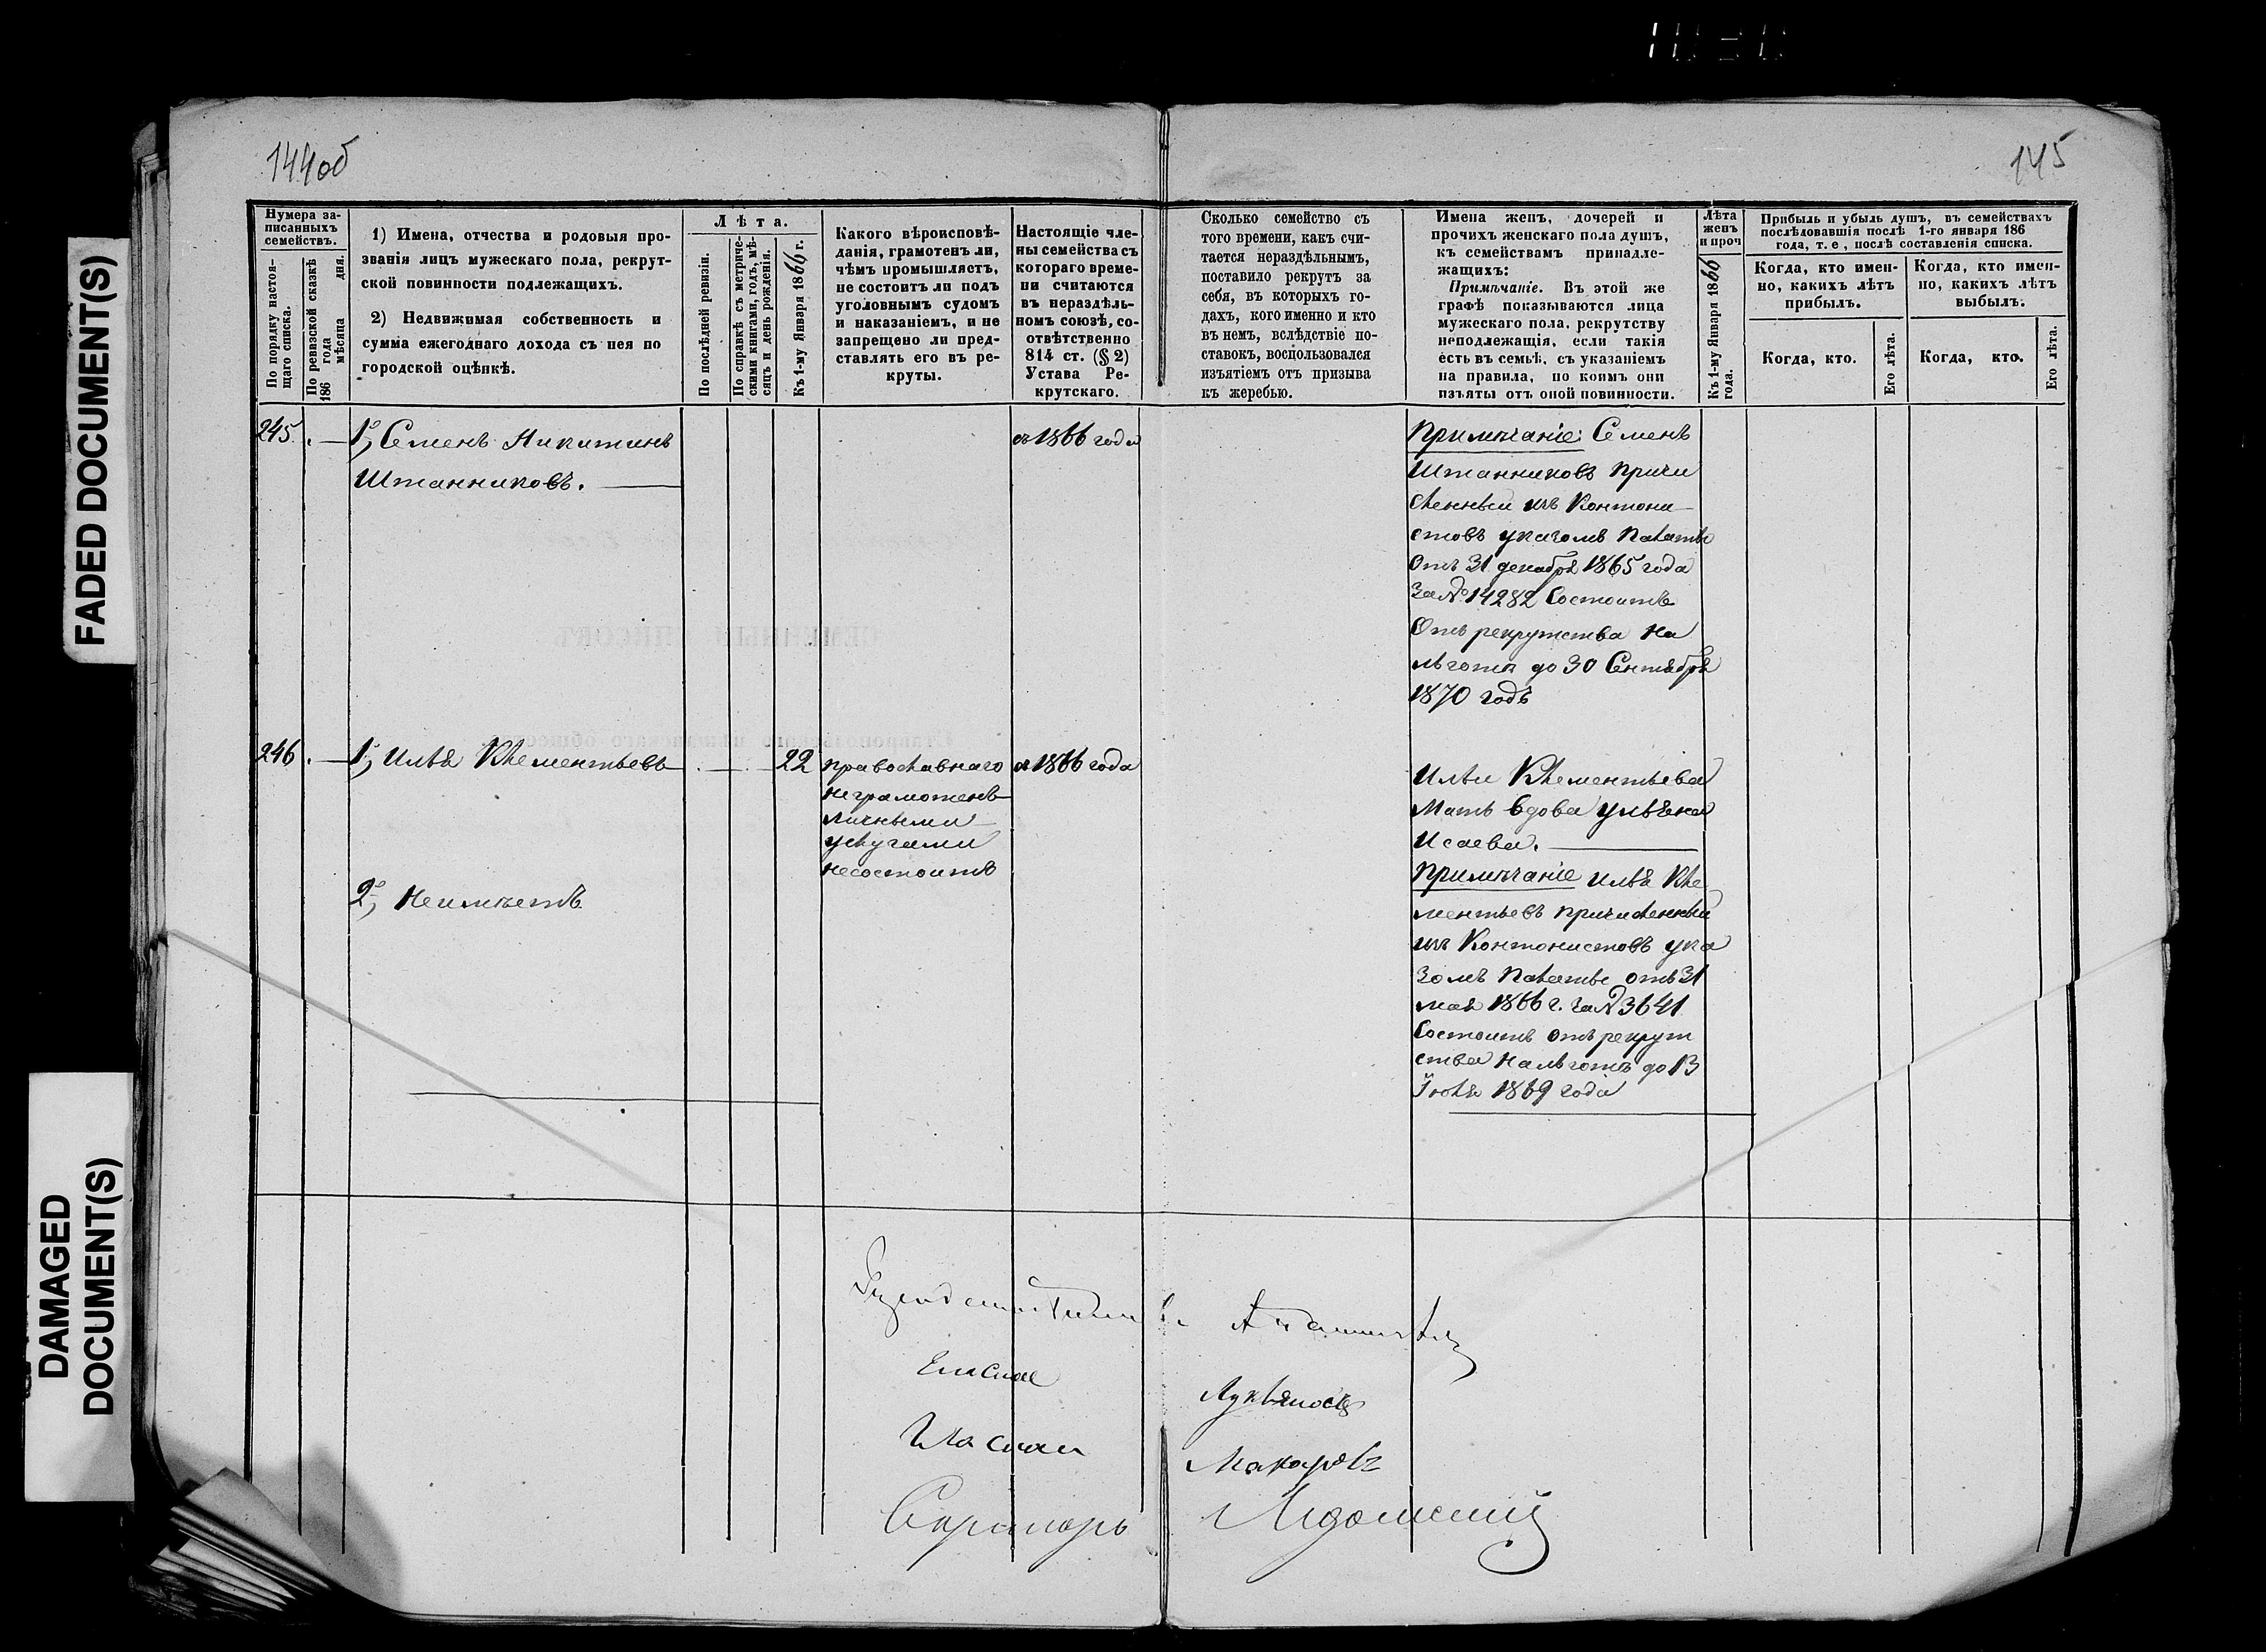 144об
145
FADED DOCUMENT(S)
DAMAGED
DOCUMENT(S)
Нумера за-
писанныхъ
семействъ.
По порядку настоя-
щаго списка.
По ревизской сказкѣ
186 года
мѣсяца дня.
1) Имена, отчества и родовыя про-
званія лицъ мужескаго пола, рекрут-
ской повинности подлежащихъ.
2) Недвижимая собственность и
сумма ежегоднаго дохода съ нея по
городской оцѣнкѣ.
Лѣта.
По послѣдней ревизіи.
По справкѣ съ метриче-
скими книгами, годъ, мѣ-
сяцъ и день рожденія.
Къ 1-му Января 1866 г.
Какого вѣроисповѣ-
данія, грамотенъ ли,
чѣмъ промышляетъ,
не состоитъ ли подъ
уголовнымъ судомъ
и наказаніемъ, и не
запрещено ли пред-
ставлять его въ ре-
круты.
Настоящіе чле-
ны семейства съ
котораго време-
ни считаются
въ нераздѣль-
номъ союзѣ, со-
отвѣтственно
814 ст. (§ 2)
Устава Ре-
крутскаго.
Сколько семейство съ
того времени, какъ счи-
тается нераздѣльнымъ,
поставило рекрутъ за
себя, въ которыхъ го-
дахъ, кого именно и кто
въ немъ, вслѣдствіе по-
ставокъ, воспользовался
изъятіемъ отъ призыва
къ жеребью.
Имена женъ, дочерей и
прочихъ женскаго пола душъ,
къ семействамъ принадле-
жащихъ:
Примѣчаніе. Въ этой же
графѣ показываются лица
мужескаго пола, рекрутству
неподлежащія, если такія
есть въ семьѣ, съ указаніемъ
на правила, по коимъ они
изъяты отъ оной повинности.
Лѣта
женъ
и проч
Къ 1-му Января 1866
года.
Прибыль и убыль душъ, въ семействахъ
послѣдовавшія послѣ 1-го января 186
года, т. е, послѣ составленія списка.
Когда, кто имен-
но, какихъ лѣтъ
прибылъ.
Когда, кто имен-
но, какихъ лѣтъ
выбылъ.
Когда, кто.
Его лѣта.
Когда, кто.
Его лѣта.
245. 1, Семенъ Никитинъ
Штанниковъ.
съ 1866 года
Примѣчаніе: Семенъ
Штанниковъ причи
сленный изъ Контони
стовъ указомъ Палаты
Отъ 31 декабря 1865 года
За № 14282 Состоитъ
Отъ рекрутства на
льготѣ до 30 Сентября
1870 годъ
246. 1, Илья Клементьевъ
22
православнаго
неграмотенъ
личными
услугами
несостоитъ
съ 1866 года
2, Неимѣетъ
Ильи Клементьева
Мать вдова Ульяна
Исаева.
Примѣчаніе Илья Кле
ментьевъ причисленный
изъ Контонистовъ ука
зомъ Палаты отъ 31
мая 1866 г. за № 3641
Состоитъ отъ рекрут
ства на льготѣ до 13
Іюля 1869 года
Гласные
Лукьяновъ
Гласный
Макаровъ
Секретарь